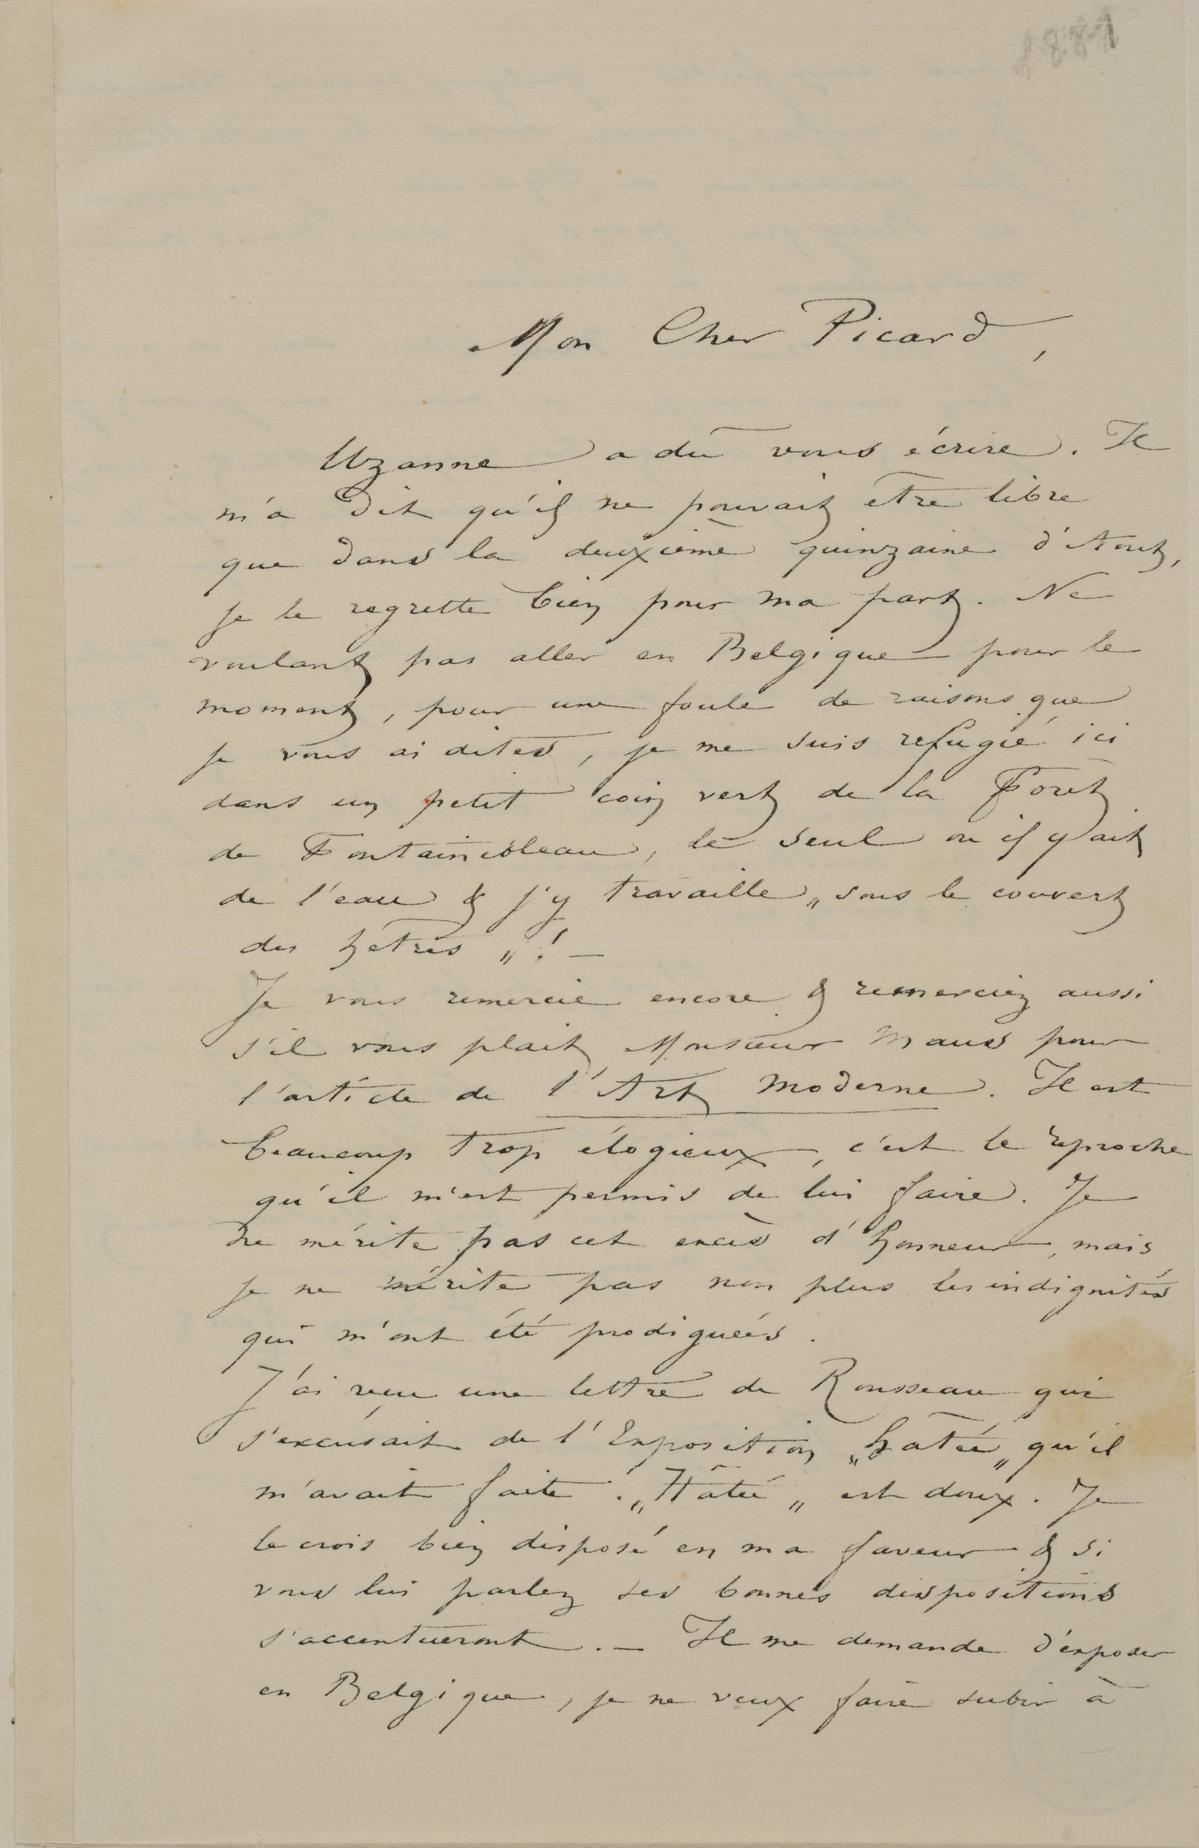 1887
Mon Cher Picard,
Uzanne a dû vous écrire. Il
m'a dit qu'il ne pouvait être libre
que dans la deuxième quinzaine d'Aout,
je le regrette bien pour ma part. Ne
voulant pas aller en Belgique pour le
moment, pour une foule de raisons que
je vous ai dites, je me suis refugié ici
dans un petit coin vert de la Forêt
de Fontainebleau, le seul ou il y ait
de l'eau & j'y travaille „sous le couvert
des hêtres„! —
Je vous remercie encore & remerciez aussi
s'il vous plait Monsieur Maus pour
l'article de l'Art Moderne. Il est
beaucoup trop élogieux, c'est le reproche
qu'il m'est permis de lui faire. Je
ne mérite pas cet excès d'honneur, mais
je ne mérite pas non plus les indignités
qui m'ont été prodiguées.
J'ai reçu une lettre de Rousseau qui
s'excusait de l'Exposition „hâtée„ qu'il
m'avait faite. „Hâtée„ est doux. Je
le crois bien disposé en ma faveur & si
vous lui parlez ses bonnes dispositions
s'accentueront. — Il me demande d'exposer
en Belgique, je ne veux faire subir à